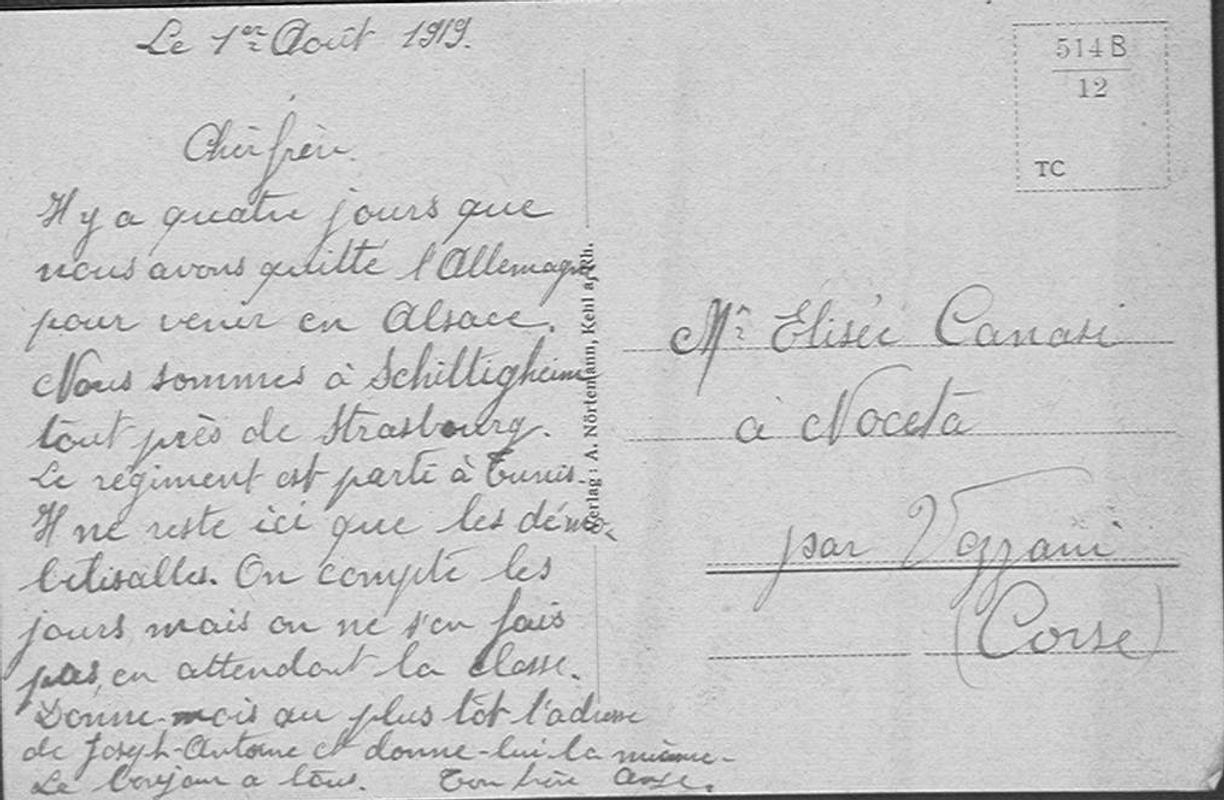 Le 1er Août 1919.
Cher frère.
Il y a quatre jours que
nous avons quitté l'Allemagne
pour venir en Alsace.
Nous sommes à Schiltigheim
tout près de Strasbourg.
Le régiment est parti à Tunis.
Il ne reste ici que les démo-
bilisalles. On compte les
jours mais on ne s'en fais
pas, en attendant la classe.
Donne-mois au plus tôt l'adresse
de Joseph-Antoine et donne-lui la mienne-
Le bonjour a tous. Ton frère Ange.
Verlag: A. Nörtemann, Kehl a. Rh.
514 B
12
TC
Mr Elisée Canasi
à Noceta
par Vezzani
(Corse)